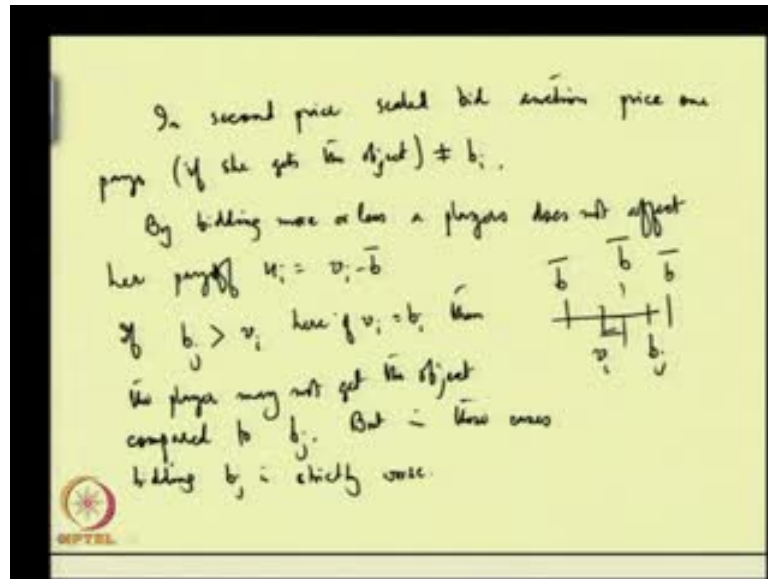 In second price sealed bid auction price one
pays (if she gets the object) ≠ bᵢ.
By bidding more or less a players does not affect
her payoff uᵢ = vᵢ - b̄
b̄ b̄ b̄
If bⱼ > vᵢ here if vᵢ = bᵢ then
vᵢ bⱼ
the player may not get the object
compared to bⱼ. But in those cases
bidding bⱼ is strictly worse.
NPTEL